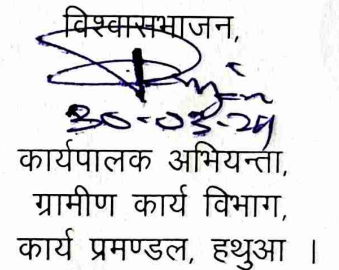 विश्वासभाजन,
30-03-24
कार्यपालक अभियन्ता,
ग्रामीण कार्य विभाग,
कार्य प्रमण्डल, हथुआ ।